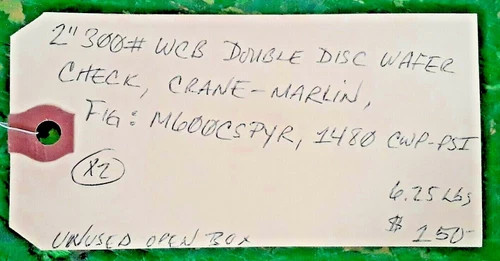 2" 300# WCB DOUBLE DISC WAFER
CHECK, CRANE-MARLIN,
FIG: M600CSPYR, 1480 CWP-PSI
X2
6.25 Lbs
$ 150-
UNUSED OPEN BOX